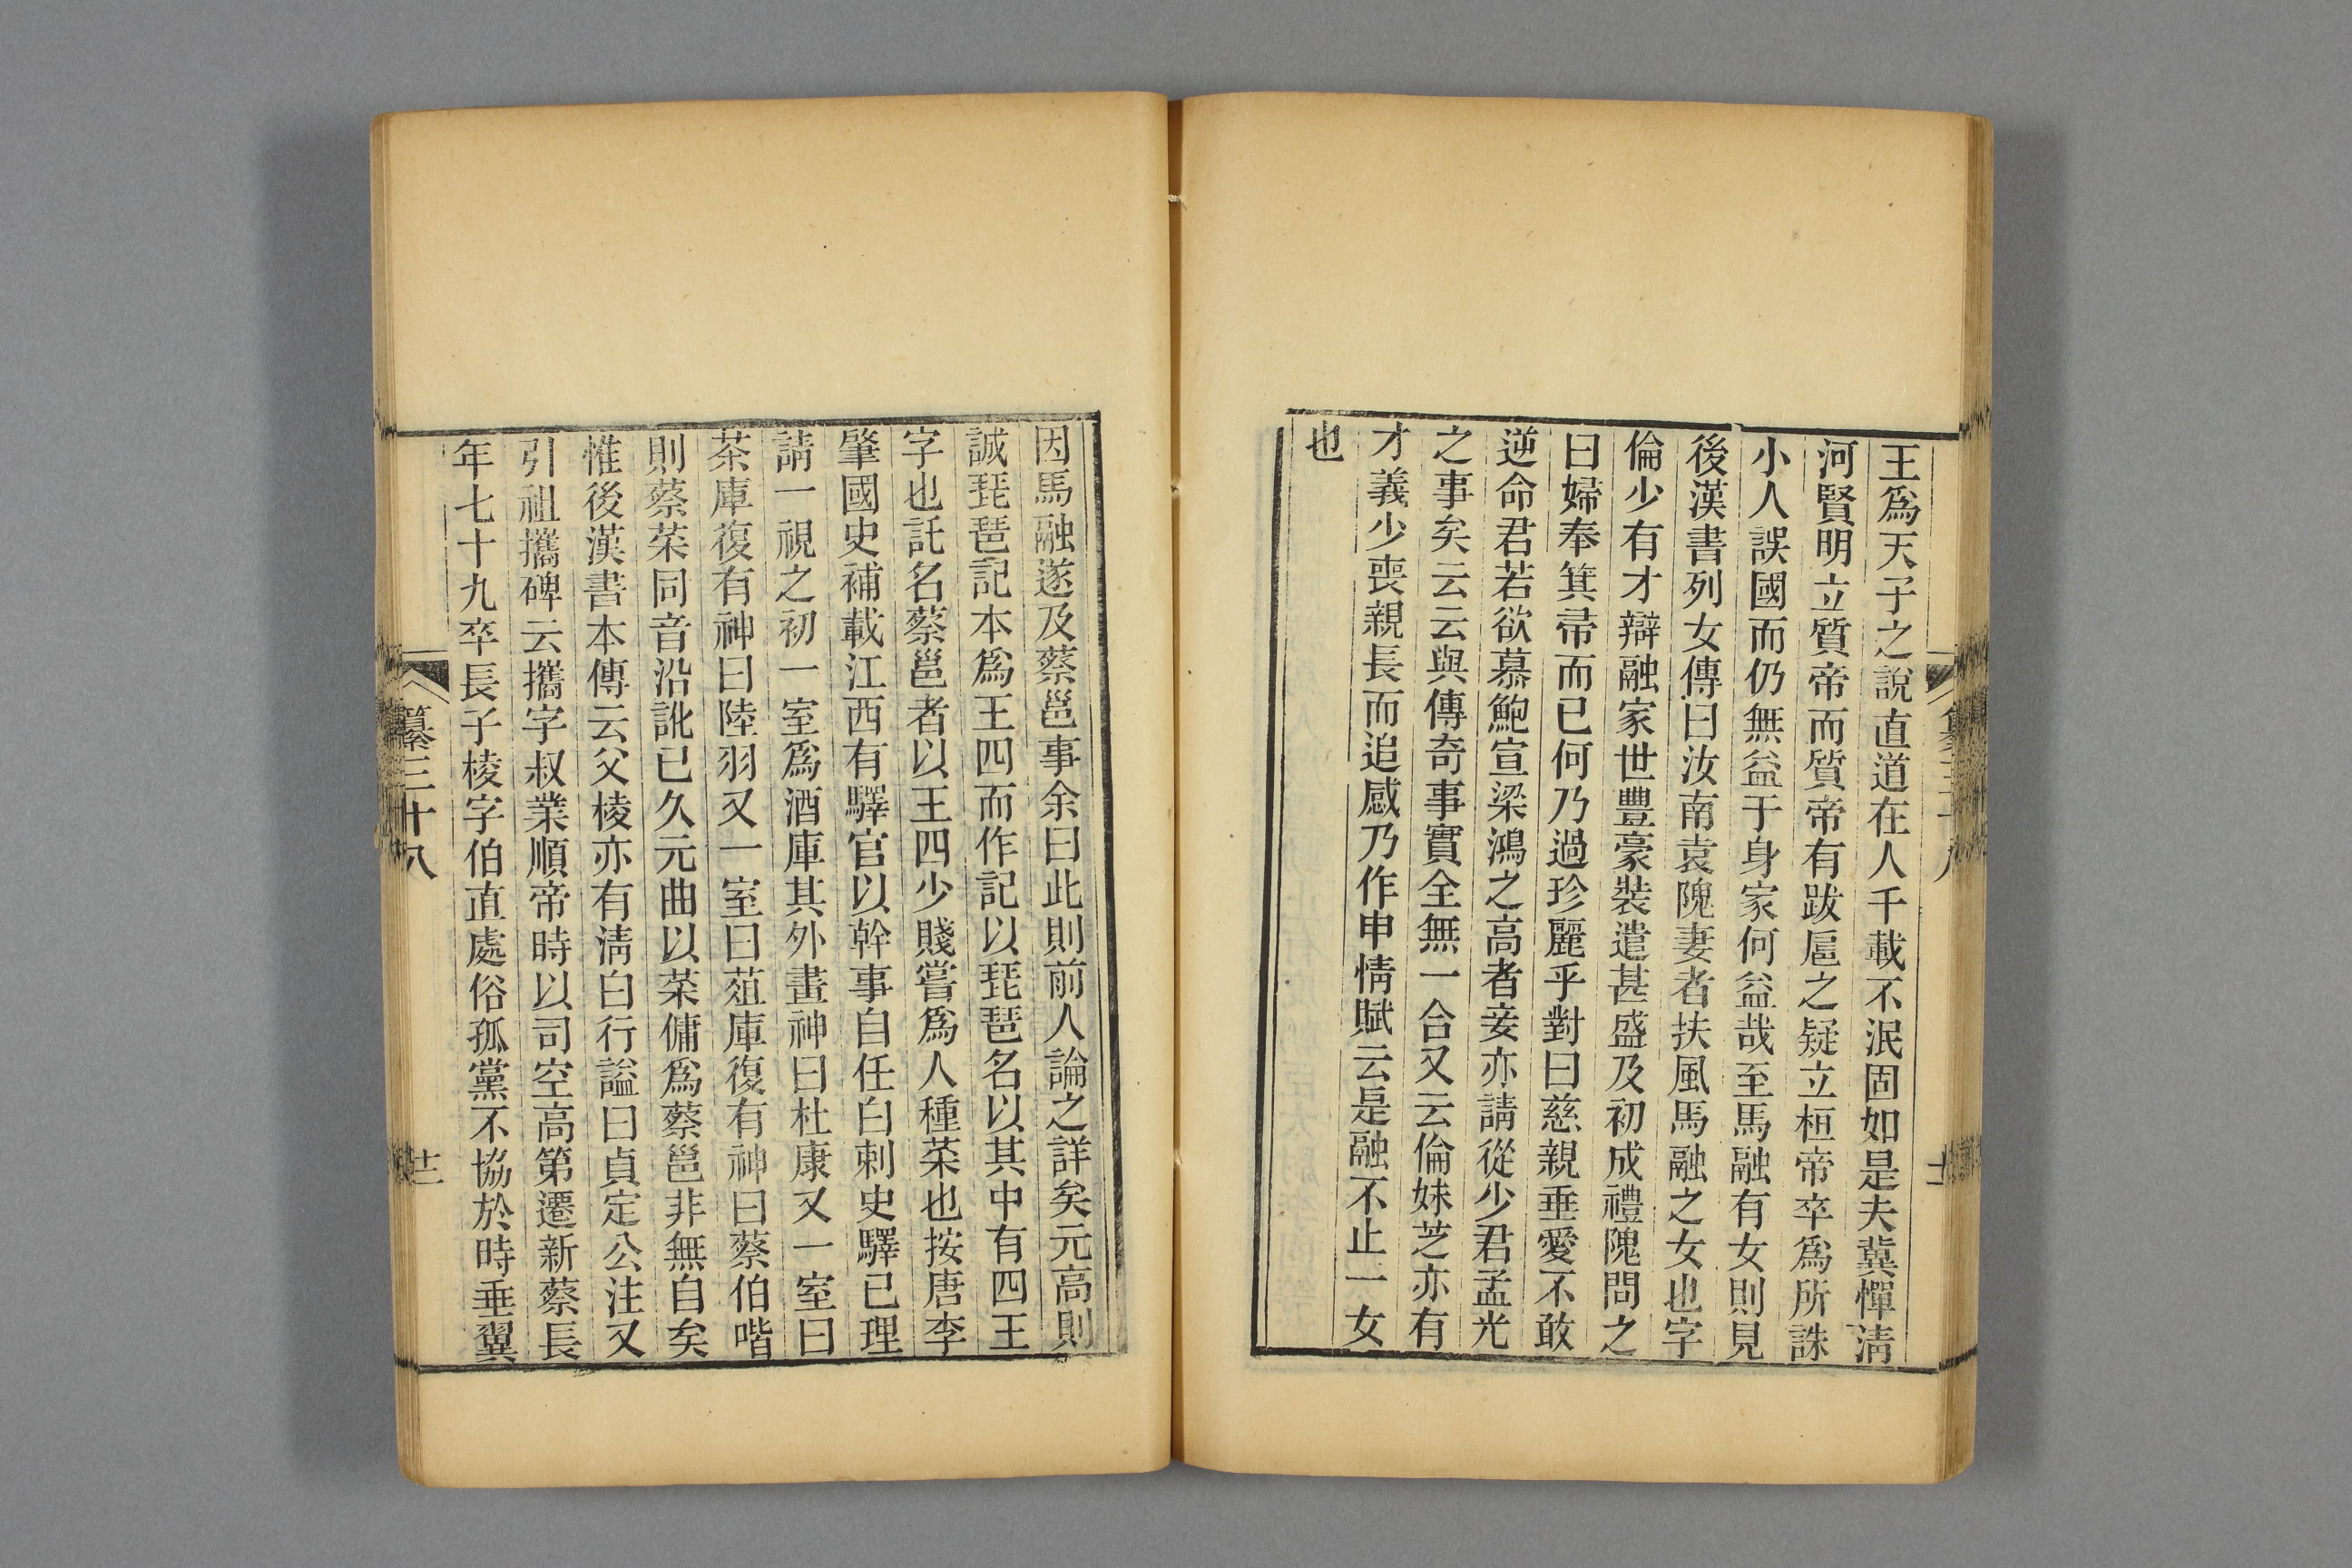 王爲天子之說直道在人千載不泯固如是夫冀憚淸
河賢明立質帝而質帝有跋扈之疑立桓帝卒爲所誅
小人誤國而仍無益于身家何益哉至馬融有女則見
後漢書列女傳曰汝南袁隗妻者扶風馬融之女也字
倫少有才辯融家世豐豪裝遣甚盛及初成禮隗問之
曰婦奉箕帚而已何乃過珍麗乎對曰慈親垂愛不敢
逆命君若欲慕鮑宣梁鴻之高者妾亦請從少君孟光
之事矣云云與傳奇事實全無一合又云倫妹芝亦有
才義少喪親長而追感乃作申情賦云是融不止一女
也
因馬融遂及蔡邕事余曰此則前人論之詳矣元高則
誠琵琶記本爲王四而作記以琵琶名以其中有四王
字也託名蔡邕者以王四少賤嘗爲人種菜也按唐李
肇國史補載江西有驛官以幹事自任白刺史驛已理
請一視之初一室爲酒庫其外畫神曰杜康又一室曰
茶庫復有神曰陸羽又一室曰葅庫復有神曰蔡伯喈
則蔡菜同音沿訛已久元曲以菜傭爲蔡邕非無自矣
惟後漢書本傳云父棱亦有淸白行謚曰貞定公注又
引祖攜碑云攜字叔業順帝時以司空高第遷新蔡長
年七十九卒長子棱字伯直處俗孤黨不協於時垂翼
纂三十八